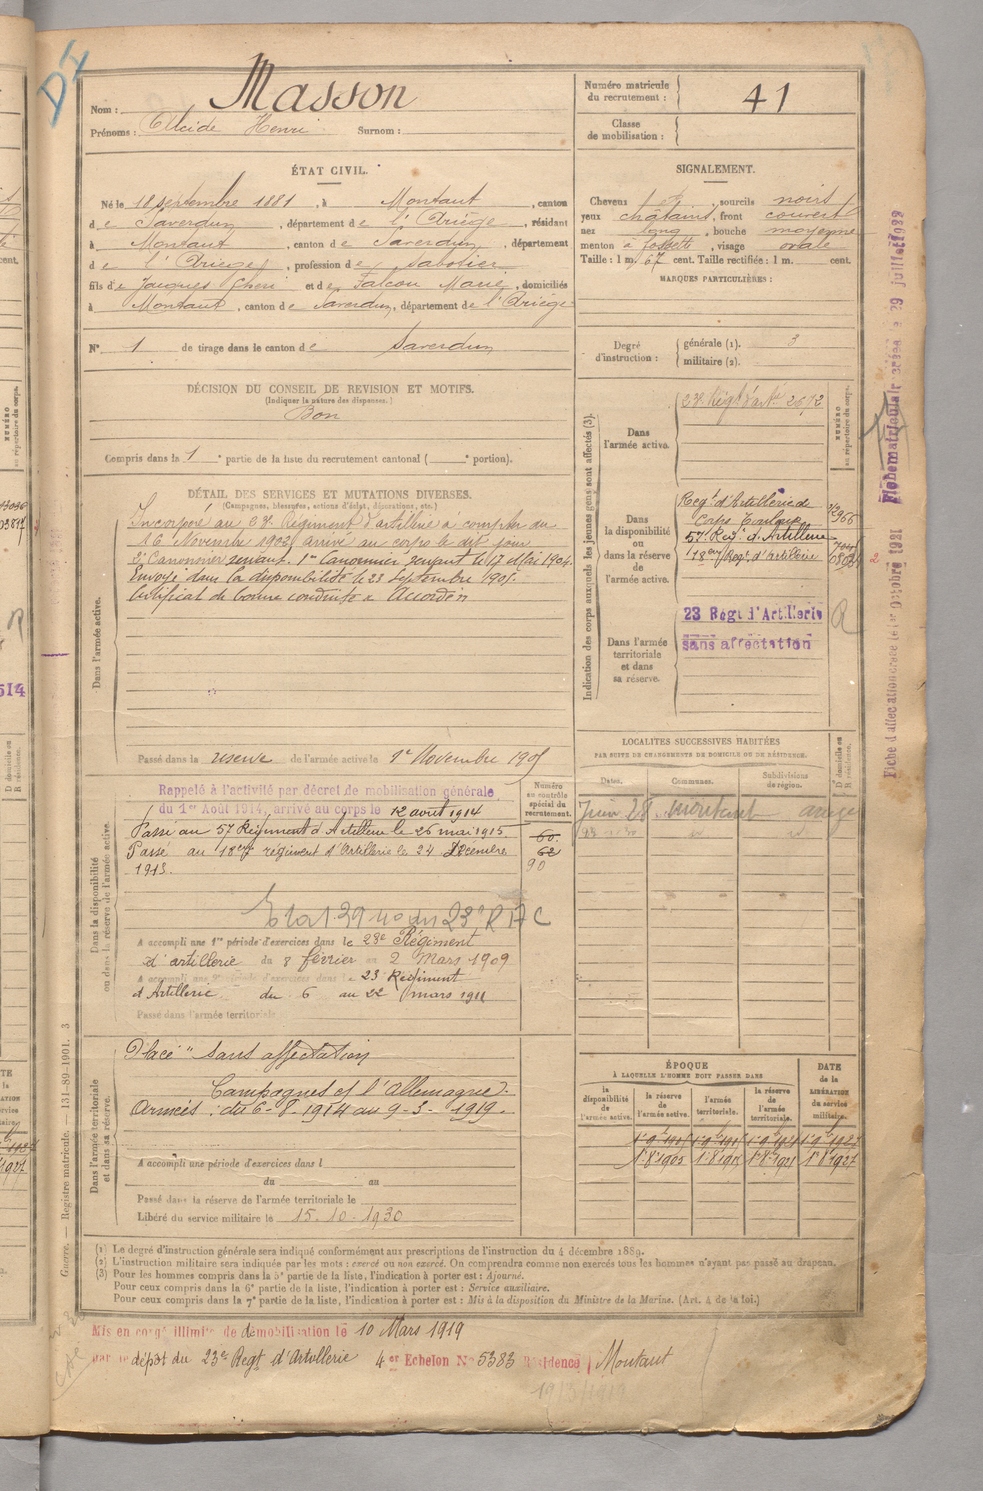 DI
Nom : Masson
Prénoms : Alcide Henri Surnom :
Numéro matricule du recrutement : 41
Classe de mobilisation :
ÉTAT CIVIL.
Né le 18 septembre 1881, à Montaut, canton
de Saverdun, département de l'Ariège, résidant
à Montaut, canton de Saverdun, département
de l'Ariège, profession de Sabotier
fils de Jacques et de Falcou Marie, domiciliés
à Montaut, canton de Saverdun, département de l'Ariège
N° 1 de tirage dans le canton de Saverdun
SIGNALEMENT.
Cheveux , sourcils noirs
yeux chatains, front couvert
nez long, bouche moyenne
menton à fossette, visage ovale
Taille : 1 m. 67 cent. Taille rectifiée : 1 m. cent.
MARQUES PARTICULIÈRES :
Degré d'instruction :
générale (1). 3
militaire (2).
DÉCISION DU CONSEIL DE REVISION ET MOTIFS.
(Indiquer la nature des dispenses.)
Bon
Compris dans la 1e partie de la liste du recrutement cantonal ( e portion).
DÉTAIL DES SERVICES ET MUTATIONS DIVERSES.
(Campagnes, blessures, actions d'éclat, décorations, etc.)
Dans l'armée active.
Incorporé au 23e Régiment d'artillerie à compter du
16 Novembre 1902, arrivé au corps le dit jour
2e Canonnier servant. 1er Canonnier servant le 17 Mai 1904.
Envoyé dans la disponibilité le 23 Septembre 1905.
Certificat de bonne conduite "Accordé"
Passé dans la réserve de l'armée active le 1er Novembre 1905
Indication des corps auxquels les jeunes gens sont affectés (3).
NUMÉRO au répertoire du corps.
Dans l'armée active.
23e Régt d'artie 2672
Dans la disponibilité ou dans la réserve de l'armée active.
Regt d'Artillerie de
Camp Toulouse 966
57e Reg. d'Artillerie
18eme Reg. d'Artillerie
Dans l'armée territoriale et dans sa réserve.
23 Régt d'Artillerie
sans affectation
R
Fiche d'affectation créée le 1er Octobre 1921
Fiche matriculaire créée le 29 juillet 1929
Dans la disponibilité ou dans la réserve de l'armée active.
Numéro au contrôle spécial du recrutement.
Rappelé à l'activité par décret de mobilisation générale
du 1er Août 1914, arrivé au corps le 12 août 1914
Passé au 57 Régiment d'Artillerie le 26 mai 1915
Passé au 18eme régiment d'Artillerie le 24 Décembre
1915.
60
62
90
A accompli une 1re période d'exercices dans le 23e Régiment
d'artillerie du 8 février au 2 Mars 1909
A accompli une 2e période d'exercices dans le 23e Régiment
d'Artillerie du 6 au 22 mars 1911
Passé dans l'armée territoriale
LOCALITÉS SUCCESSIVES HABITÉES
PAR SUITE DE CHANGEMENTS DE DOMICILE OU DE RÉSIDENCE.
Dates. Communes. Subdivisions de région. D domicile ou R résidence.
Juin 28 Montaut ariege
Dans l'armée territoriale et dans sa réserve.
Placé "sans affectation
Campagnes c/ l'Allemagne.
Armées : du 6-8-1914 au 9-3-1919.
A accompli une période d'exercices dans l
du au
Passé dans la réserve de l'armée territoriale le
Libéré du service militaire le 15-10-1930
ÉPOQUE
À LAQUELLE L'HOMME DOIT PASSER DANS
la disponibilité de l'armée active.
la réserve de l'armée active.
l'armée territoriale.
la réserve de l'armée territoriale.
DATE de la LIBÉRATION du service militaire.
1-9-1905 1-9-1915 1-9-1921 1-9-1927
1-8-1905 1-8-1915 1-8-1921 1-8-1927
(1) Le degré d'instruction générale sera indiqué conformément aux prescriptions de l'instruction du 4 décembre 1889.
(2) L'instruction militaire sera indiquée par les mots : exercé ou non exercé. On comprendra comme non exercés tous les hommes n'ayant pas passé au drapeau.
(3) Pour les hommes compris dans la 5e partie de la liste, l'indication à porter est : Ajourné.
Pour ceux compris dans la 6e partie de la liste, l'indication à porter est : Service auxiliaire.
Pour ceux compris dans la 7e partie de la liste, l'indication à porter est : Mis à la disposition du Ministre de la Marine. (Art. 4 de la loi.)
Guerre. — Registre matricule. — 131-89-1901. 3
Mis en congé illimité de démobilisation le 10 Mars 1919
par le dépôt du 23e Regt d'Artillerie 4er Echelon N° 5383 Résidence Montaut